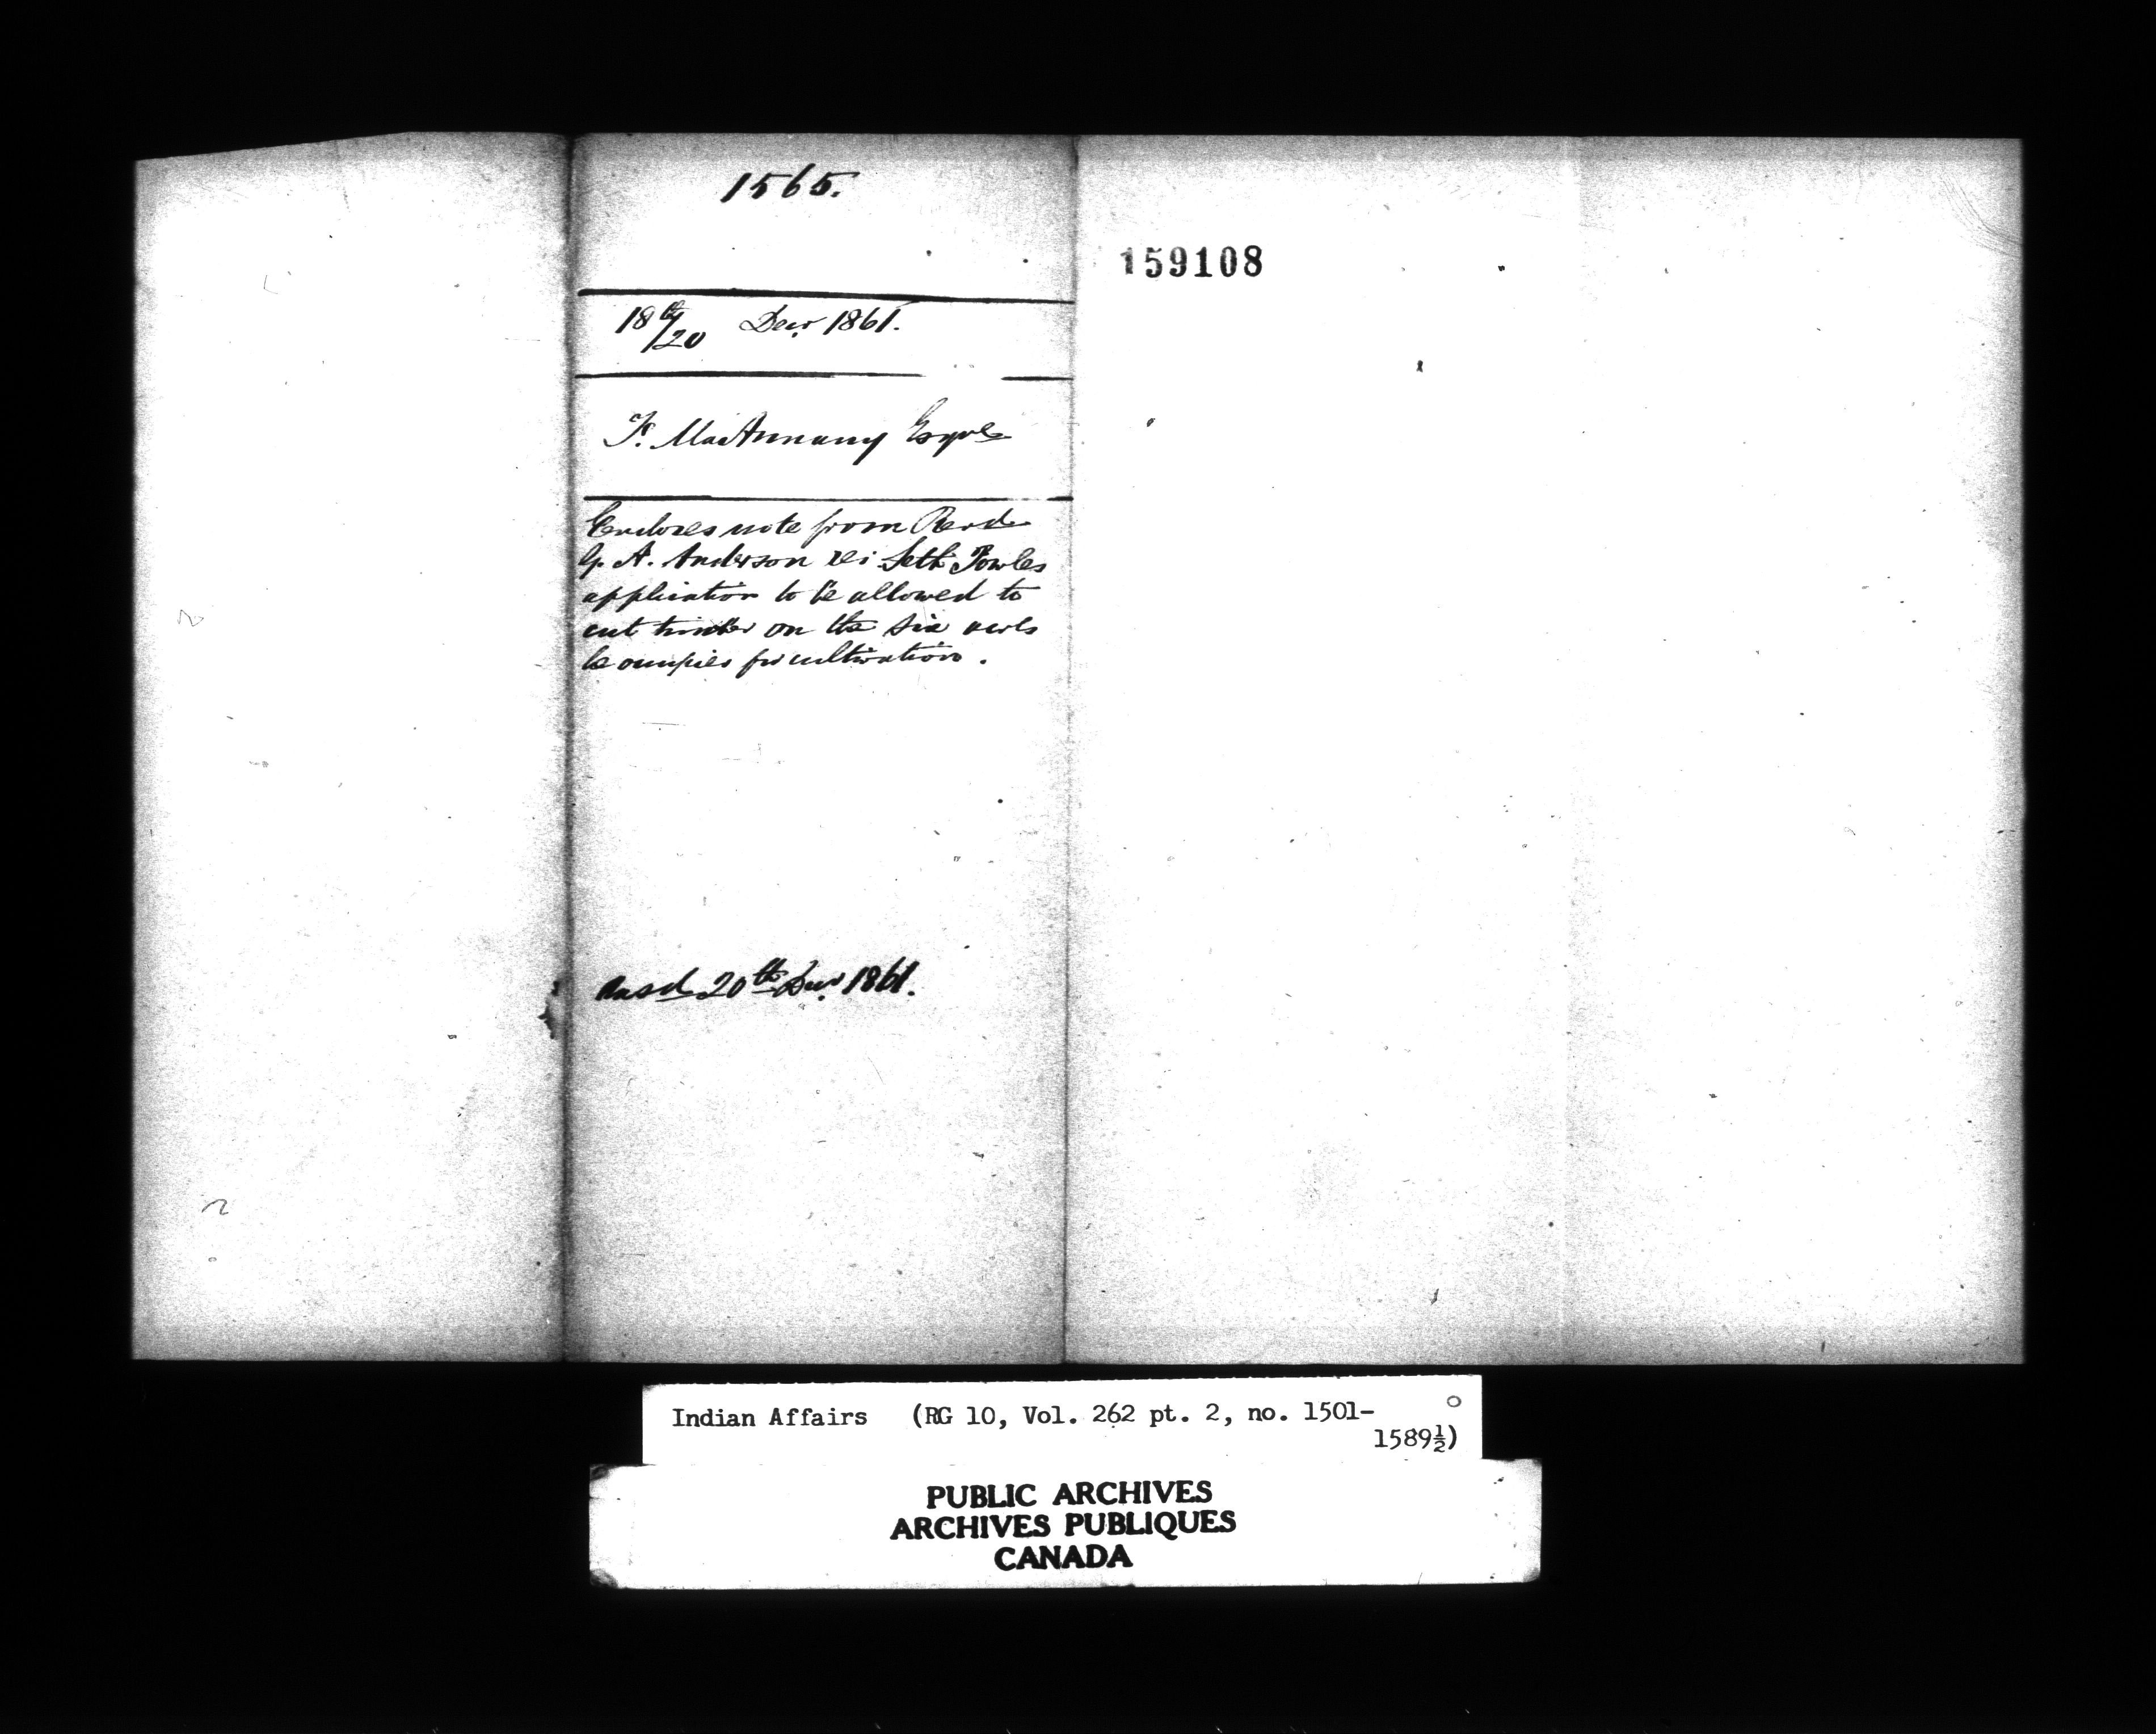 1565.
159108
18th/20 Decr 1861.
T. MacAnnany Esqre
Encloses note from Revd
G. A. Anderson re: Seth Powles
application to be allowed to
cut timber on the six acres
he occupies for cultivation.
Ansd 20th Decr 1861.
Indian Affairs (RG 10, Vol. 262 pt. 2, no. 1501-
1589½)
PUBLIC ARCHIVES
ARCHIVES PUBLIQUES
CANADA